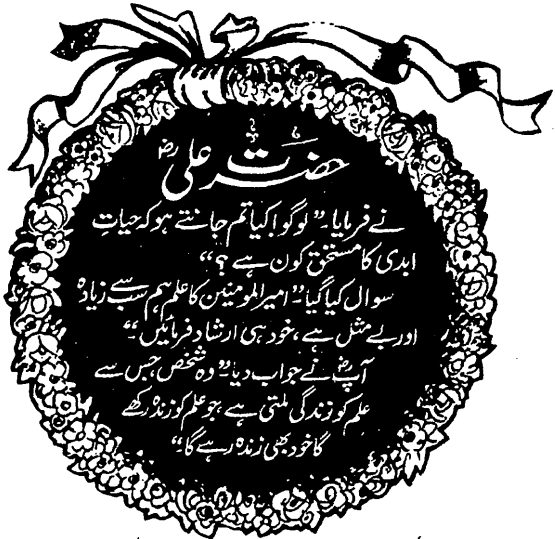 حضرت علیؓ
نے فرمایا۔ ”لوگو! کیا تم جانتے ہو کہ حیاتِ
ابدی کا مستحق کون ہے؟“
سوال کیا گیا۔ ”امیر المومنین کا علم ہم سب سے زیادہ
اور بے مثل ہے، خود ہی ارشاد فرمائیں۔“
آپؓ نے جواب دیا ”وہ شخص جس سے
علم کو زندگی ملتی ہے، جو علم کو زندہ رکھے
گا خود بھی زندہ رہے گا۔“